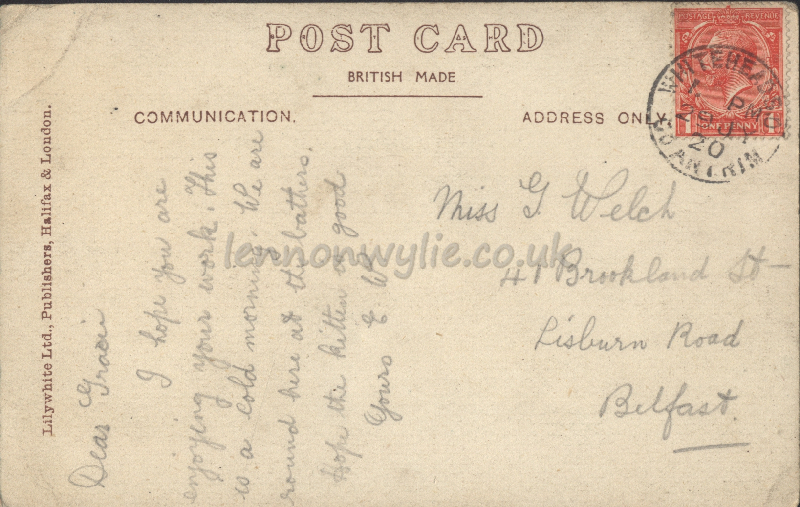 POST CARD
BRITISH MADE
COMMUNICATION.
ADDRESS ONLY
POSTAGE REVENUE
1 ONE PENNY 1
WHITEHEAD
PM
JY
20
CO ANTRIM
Lilywhite Ltd., Publishers, Halifax & London.
Dear Gracie
I hope you are
enjoying your work. This
is a cold morning. We are
round here at the bathers.
Hope the kitten is good
Yours E. W.
Miss G Welch
41 Brookland St
Lisburn Road
Belfast.
lennonwylie.co.uk